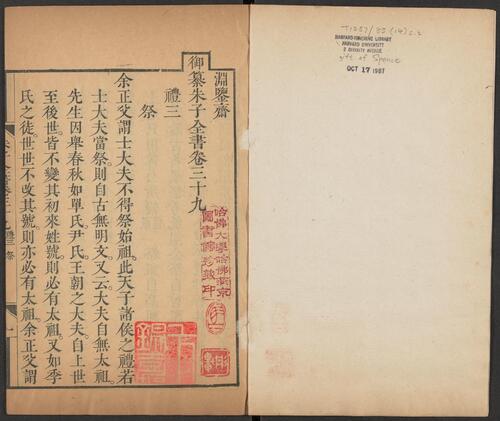 淵鑒齋
御纂朱子全書卷三十九
禮三
祭
余正父謂士大夫不得祭始祖此天子諸侯之禮若
士大夫當祭則自古無明文又云大夫自無太祖
先生因舉春秋如單氏尹氏王朝之大夫自上世
至後世皆不變其初來姓號則必有太祖又如季
氏之徒世世不改其號則亦必有太祖余正父謂
哈佛大學哈佛燕京
圖書館珍藏印
HARVARD-YENCHING LIBRARY
HARVARD UNIVERSITY
2 DIVINITY AVENUE
gift of Spence
OCT 17 1987